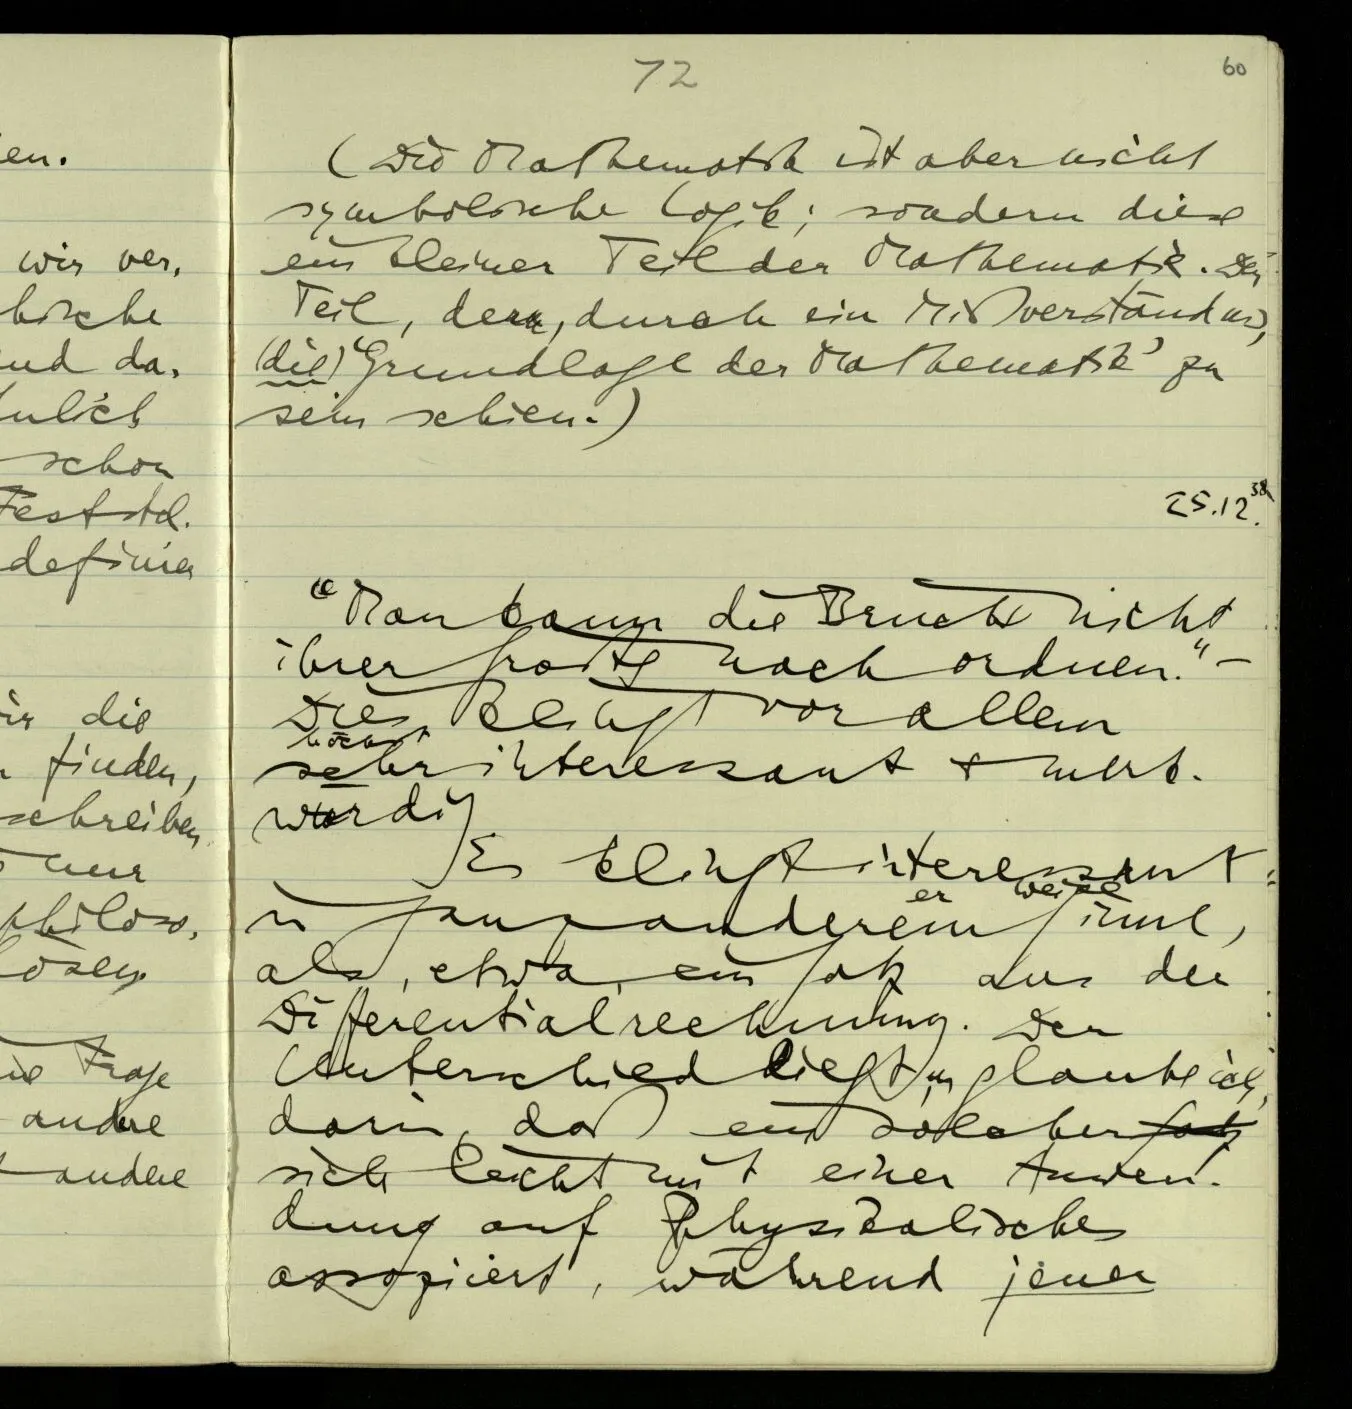 en.
wir ver,
bische
und da,
nlich
schon
Festst.
definier
wir die
finden,
schreiben
nur
philoso,
lösen
die Frage
andere
andere
72
60
(Die Mathematik ist aber nicht
symbolische Logik; sondern diese
ein kleiner Teil der Mathematik. Der
Teil, der, durch ein Mißverständnis,
(die) 'Grundlage der Mathematik' zu
sein schien.)
25.12.38
“Man kann die Brüche nicht
ihrer Größe nach ordnen.” –
Dies klingt vor allem
höchst
sehr interessant + merk-
würdig
Es klingt interessant
in ganz anderem Sinne,
er weise
als, etwa, ein Satz aus der
Differentialrechnung. Der
Unterschied liegt, glaube ich,
darin, daß ein solcher Satz
sich leicht mit einer Anwen-
dung auf Physikalisches
assoziiert, während jener